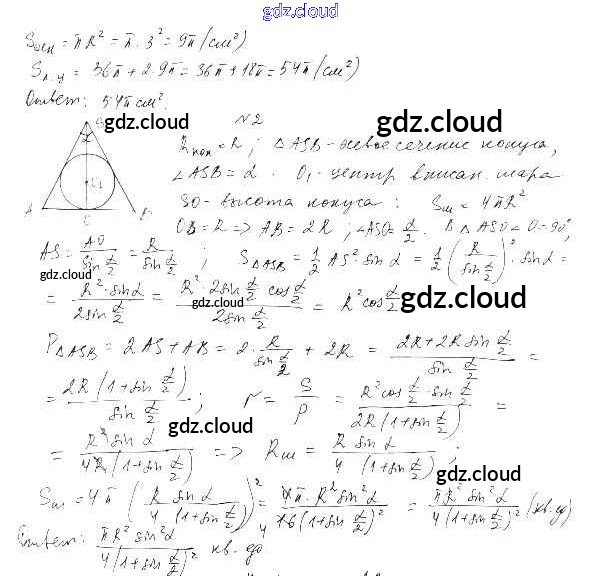 gdz.cloud
Sосн = πR² = π · 3² = 9π (см²)
Sп.у = 36π + 2·9π = 36π + 18π = 54π (см²)
Ответ: 54π см².
gdz.cloud
gdz.cloud
N2
Rкон = R; △ASB - осевое сечение конуса,
∠ASB = α. O₁ - центр впис. шара
gdz.cloud
SO - высота конуса: Sш = 4πR²
OB = R => AB = 2R; ∠ASO = α/2. В △ASO ∠O = 90°,
AS = AO / sin α/2 = R / sin α/2; S△ASB = 1/2 AS² · sin α = 1/2 (R / sin α/2)² · sin α =
gdz.cloud
gdz.cloud
= R² · sin α / 2sin α/2 = R² · 2sin α/2 cos α/2 / 2sin α/2 = R² cos α/2
gdz.cloud
P△ASB = 2AS + AB = 2 · R / sin α/2 + 2R = 2R + 2R sin α/2 / sin α/2 =
= 2R (1 + sin α/2) / sin α/2; r = S / P = R² cos α/2 · sin α/2 / 2R (1 + sin α/2) =
gdz.cloud
= R² sin α / 4R (1 + sin α/2) => Rш = R sin α / 4 (1 + sin α/2);
gdz.cloud
Sш = 4π (R sin α / 4 (1 + sin α/2))² = 4π · R² sin² α / 16 (1 + sin α/2)² = πR² sin² α / 4 (1 + sin α/2)² (кв. ед)
Ответ: πR² sin² α / 4 (1 + sin α/2)² кв. ед
gdz.cloud